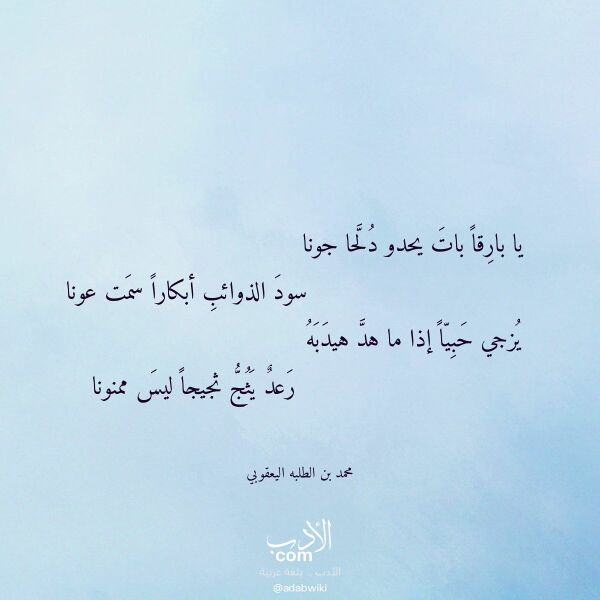 يا بارِقاً باتَ يحدو دُلَّحا جونا
سودَ الذوائبِ أبكاراً سمَت عونا
يُزجي حَبِيّاً إذا ما هدَّ هيدَبَهُ
رَعدٌ يَثُجُّ ثجيجاً ليسَ ممنونا
محمد بن الطلبه اليعقوبي
الأدب
com
الأدب .. بلغة عربية
@adabwiki